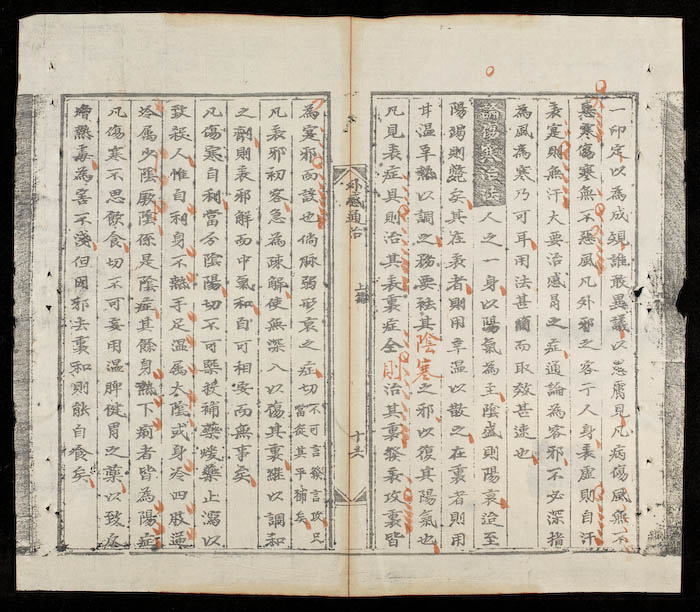 一印定以為成矩誰敢異議以愚膚見凡病傷風無不
惡寒傷寒無不惡風凡外邪之客于人身表虛則自汗
表寔則無汗大要治感冒之症通論為客邪不必深指
為風為寒乃可耳用法甚簡而取效甚速也
論傷寒治法 人之一身以陽氣為主陰盛則陽衰迨至
陽竭則斃矣其在表者則用辛温以散之在裏者則用
甘温辛熱以調之務要祛其陰寒之邪以復其陽氣也
凡見表症具則治其表裏症全則治其裏發表攻裏皆
外感通治
上編
為寔邪而設也倘脉弱形衰之症切不可言發言攻只當從其平補矣
凡表邪初客急為疎解使無深入以傷其裏雖以調和
之劑則表邪解而中氣和自可相安而無事矣
凡傷寒自利當分陰陽切不可槩投補藥煖藥止瀉以
致誤人惟自利身不熱手足温属太陰或身冷四肢逆
冷属少陰厥陰係是陰症其餘身熱下痢者皆為陽症
凡傷寒不思飲食切不可妄用温脾健胃之藥以致
增熱毒為害不淺但因邪去裏和則能自食矣